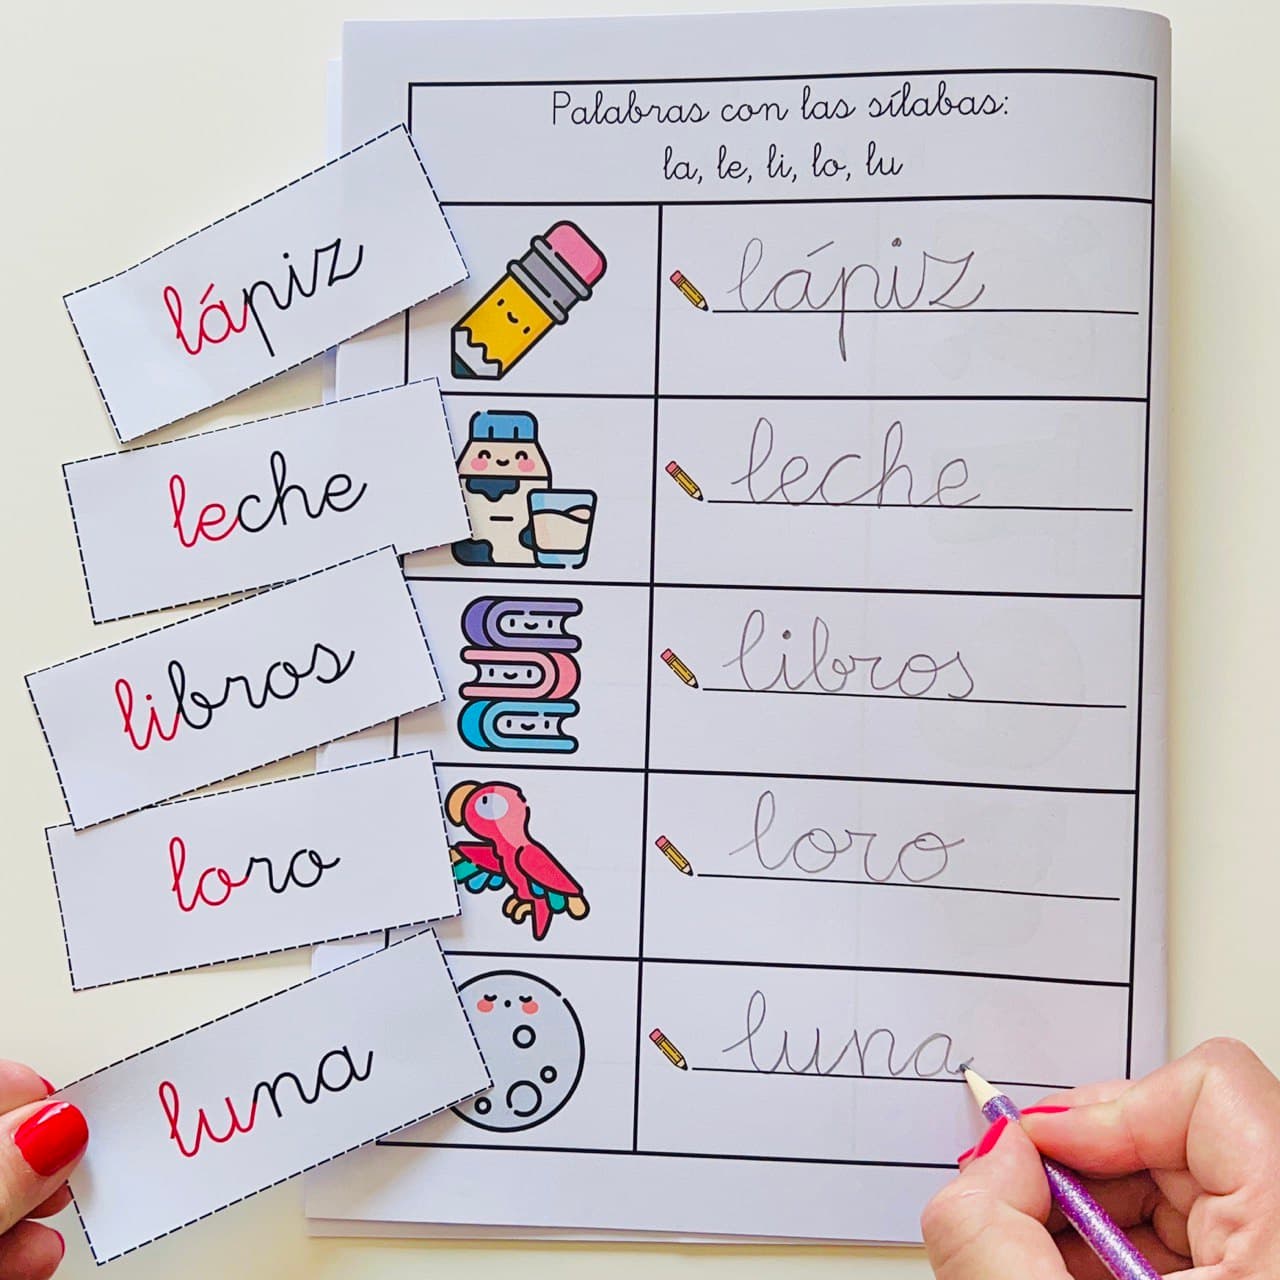 Palabras con las sílabas:
la, le, li, lo, lu
lápiz
lápiz
leche
leche
libros
libros
loro
loro
luna
luna